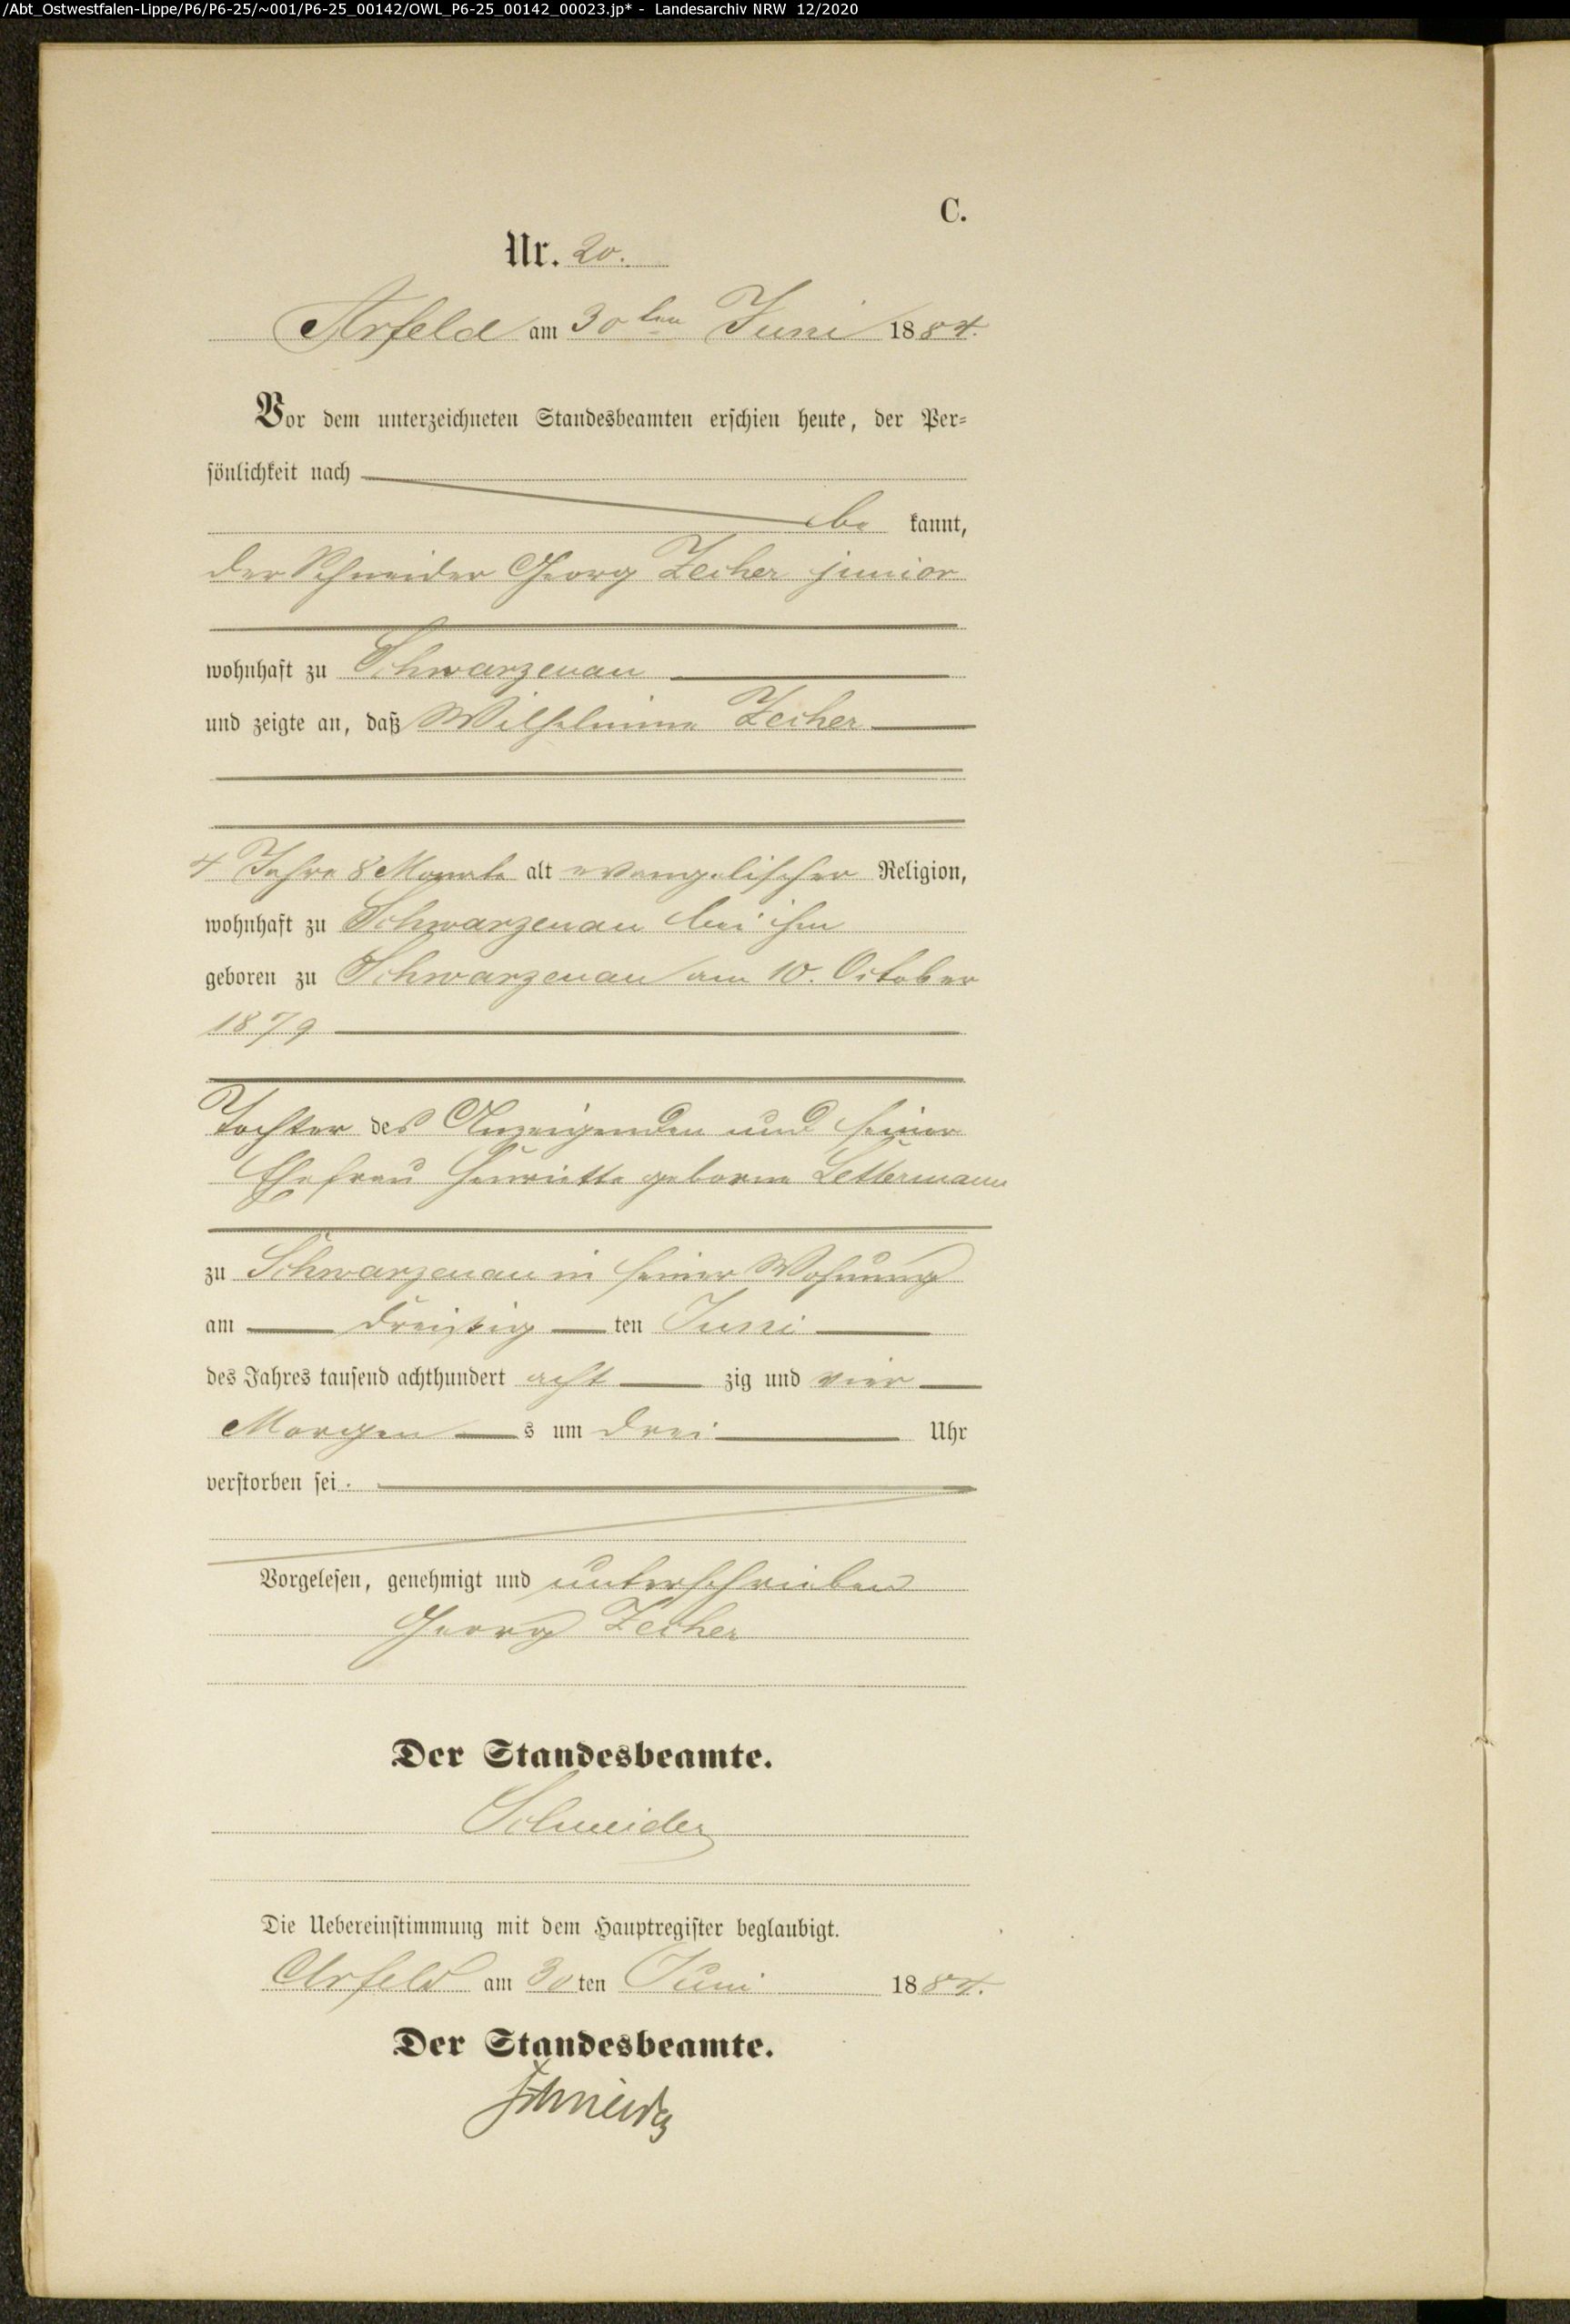 /Abt_Ostwestfalen-Lippe/P6/P6-25/~001/P6-25_00142/OWL_P6-25_00142_00023.jp* - Landesarchiv NRW 12/2020
C.
Nr. 20.
Arfeld am 30ten Juni 1884.
Vor dem unterzeichneten Standesbeamten erschien heute, der Per-
sönlichkeit nach
be kannt,
der Schneider Georg Zecher junior
wohnhaft zu Schwarzenau
und zeigte an, daß Wilhelmine Zecher
4 Jahre 8 Monate alt evangelischer Religion,
wohnhaft zu Schwarzenau bei ihm
geboren zu Schwarzenau am 10. October
1879
Tochter des Anzeigenden und seiner
Ehefrau Henriette geborne Lettermann
zu Schwarzenau in seiner Wohnung
am dreißig ten Juni
des Jahres tausend achthundert acht zig und vier
Morgen s um drei Uhr
verstorben sei.
Vorgelesen, genehmigt und unterschrieben
Georg Zecher
Der Standesbeamte.
Schneider
Die Uebereinstimmung mit dem Hauptregister beglaubigt.
Arfeld am 30ten Juni 1884.
Der Standesbeamte.
Schneider